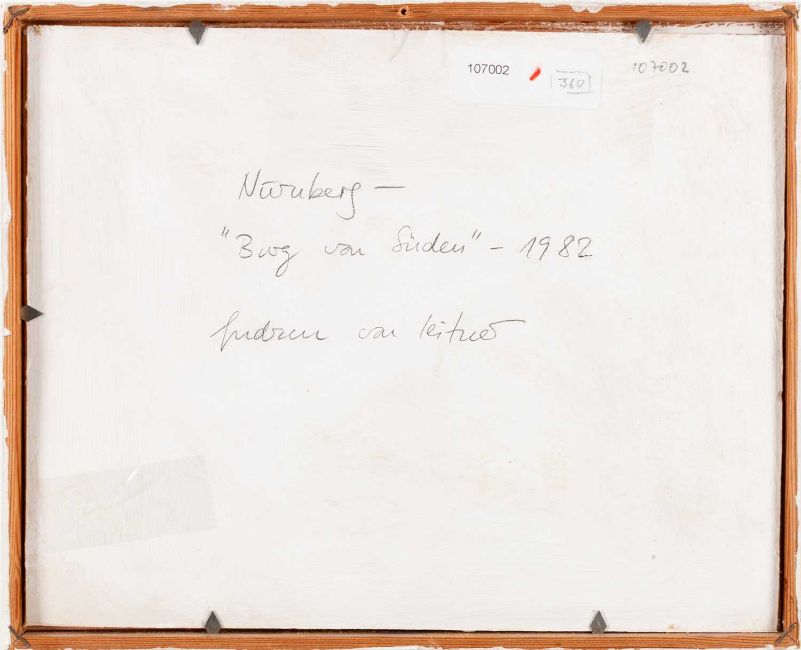 107002 360 107002
Nürnberg –
"Burg von Süden" – 1982
Gudrun von Leitner